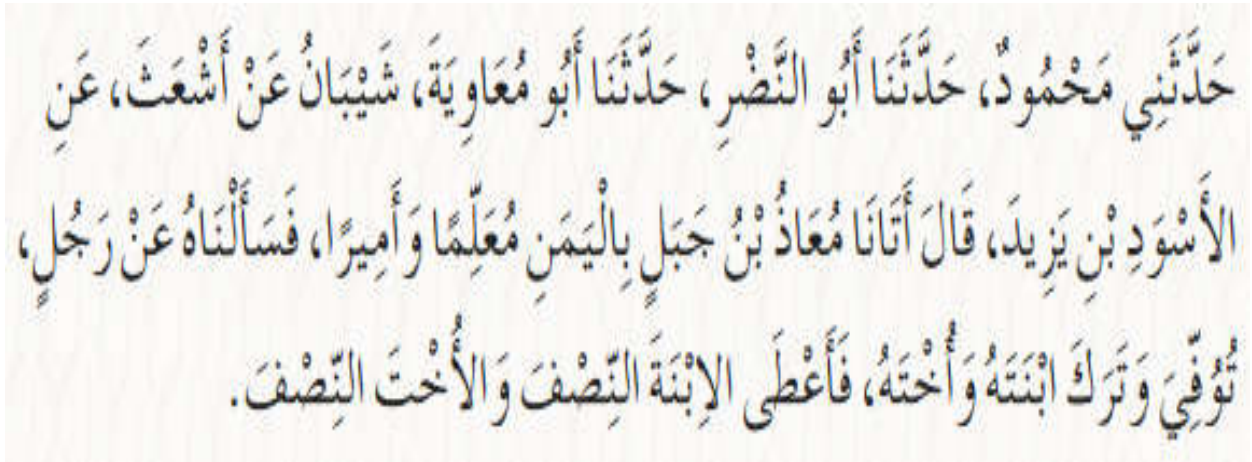 حَدَّثَنِي مَحْمُودٌ، حَدَّثَنَا أَبُو النَّضْرِ، حَدَّثَنَا أَبُو مُعَاوِيَةَ، شَيْبَانُ عَنْ أَشْعَثَ، عَنِ
الأَسْوَدِ بْنِ يَزِيدَ، قَالَ أَتَانَا مُعَاذُ بْنُ جَبَلٍ بِالْيَمَنِ مُعَلِّمًا وَأَمِيرًا، فَسَأَلْنَاهُ عَنْ رَجُلٍ،
تُوُفِّيَ وَتَرَكَ ابْنَتَهُ وَأُخْتَهُ، فَأَعْطَى الاِبْنَةَ النِّصْفَ وَالأُخْتَ النِّصْفَ.